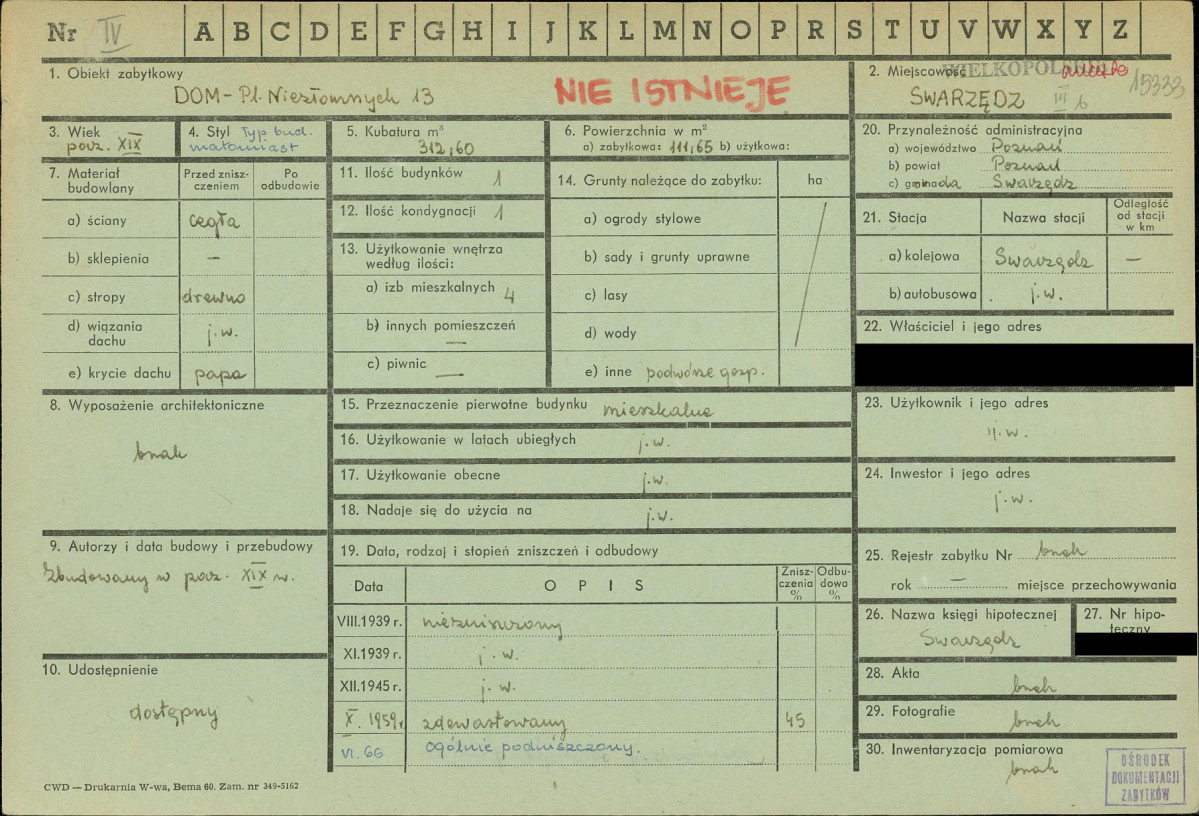 Nr IV A B C D E F G H I J K L M N O P R S T U V W X Y Z
1. Obiekt zabytkowy
DOM - Pl. Niezłomnych 13
NIE ISTNIEJE
2. Miejscowość
WIELKOPOLSKIE
15333
SWARZĘDZ
III b
3. Wiek
pocz. XIX
4. Styl Typ bud.
małomiast
5. Kubatura m³
312,60
6. Powierzchnia w m²
a) zabytkowa: 111,65 b) użytkowa:
20. Przynależność administracyjna
a) województwo Poznań
b) powiat Poznań
c) gromada Swarzędz
7. Materiał budowlany
Przed znisz-
czeniem
Po
odbudowie
a) ściany cegła
b) sklepienia —
c) stropy drewno
d) wiązania
dachu j.w.
e) krycie dachu papa
11. Ilość budynków 1
12. Ilość kondygnacji 1
13. Użytkowanie wnętrza
według ilości:
a) izb mieszkalnych 4
b) innych pomieszczeń —
c) piwnic —
14. Grunty należące do zabytku: ha
a) ogrody stylowe
b) sady i grunty uprawne
c) lasy
d) wody
e) inne podwórze gosp.
21. Stacja
Nazwa stacji
Odległość
od stacji
w km
a) kolejowa Swarzędz —
b) autobusowa j.w.
22. Właściciel i jego adres
8. Wyposażenie architektoniczne
brak
15. Przeznaczenie pierwotne budynku mieszkalne
16. Użytkowanie w latach ubiegłych j.w.
17. Użytkowanie obecne j.w.
18. Nadaje się do użycia na j.w.
23. Użytkownik i jego adres
j.w.
24. Inwestor i jego adres
j.w.
9. Autorzy i data budowy i przebudowy
Zbudowany w pocz. XIX w.
10. Udostępnienie
dostępny
19. Data, rodzaj i stopień zniszczeń i odbudowy
Data
O P I S
Znisz-
czenia
%
Odbu-
dowa
%
VIII.1939 r. niezniszczony
XI.1939 r. j.w.
XII.1945 r. j.w.
X. 1959 r zdewastowany 45
VI. 66 ogólnie podniszczony.
25. Rejestr zabytku Nr brak
rok — miejsce przechowywania
26. Nazwa księgi hipotecznej
Swarzędz
27. Nr hipo-
teczny
28. Akta
brak
29. Fotografie
brak
30. Inwentaryzacja pomiarowa
brak
OŚRODEK
DOKUMENTACJI
ZABYTKÓW
CWD — Drukarnia W-wa, Bema 60. Zam. nr 349-5162